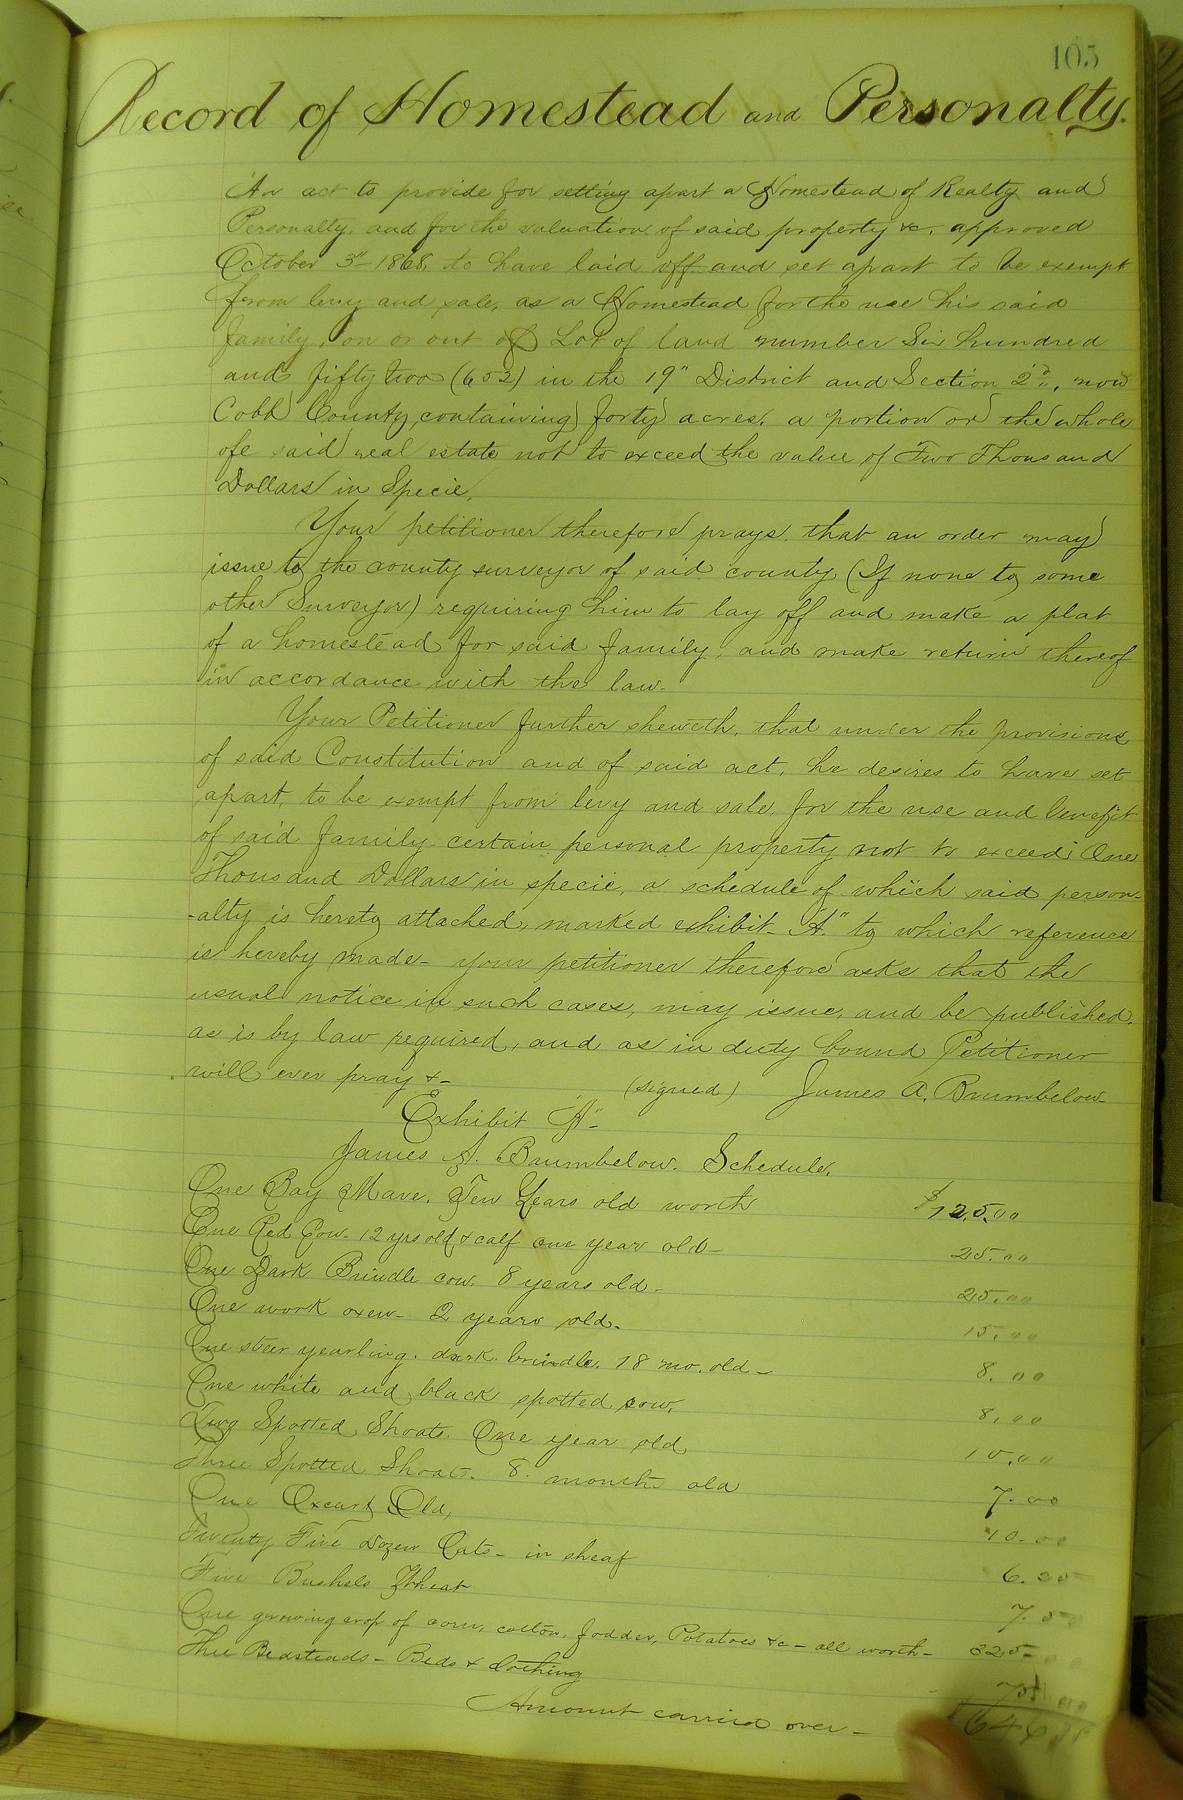 105
Record of Homestead and Personalty.
An act to provide for setting apart a Homestead of Realty and
Personalty, and for the valuation of said property &c. approved
October 3d 1868, to have laid off and set apart to be exempt
from levy and sale, as a Homestead for the use his said
family, on or out of Lot of land number Six hundred
and fifty two (652) in the 19" District and Section 2d, now
Cobb County, containing forty acres, a portion or the whole
of said real estate not to exceed the value of Two Thousand
Dollars in Specie.
Your petitioner therefore prays that an order may
issue to the county surveyor of said county (If none to some
other Surveyor) requiring him to lay off and make a plat
of a homestead for said family, and make return thereof
in accordance with the law.
Your Petitioner further sheweth, that under the provisions
of said Constitution and of said act, he desires to have set
apart, to be exempt from levy and sale, for the use and benefit
of said family certain personal property not to exceed One
Thousand Dollars in specie, a schedule of which said person-
-alty is hereto attached, marked exhibit "A." to which reference
is hereby made - your petitioner therefore asks that the
usual notice in such cases, may issue, and be published,
as is by law required, and as in duty bound Petitioner
will ever pray &- (signed) James A. Brumbelow
Exhibit "A"-
James A. Brumbelow. Schedule.
One Bay Mare. Ten Years old worth $125.00
One Red Cow. 12 yrs old & calf one year old - 25.00
One Dark Brindle cow. 8 years old - 25.00
One work oxen - 2 years old. 15.00
One steer yearling. dark. brindle. 18 mo. old - 8.00
One white and black spotted cow. 8.00
Two Spotted Shoats. One year old 10.00
Three Spotted Shoats. 8. months old 7.00
One Oxcart Old, 10.00
Twenty Five Dozen Oats - in sheaf 6.00
Five Bushels Wheat 7.50
One growing crop of corn, cotton, fodder, Potatoes &c - all worth - 325.00
Three Bedsteads - Beds & clothing
Amount carried over -